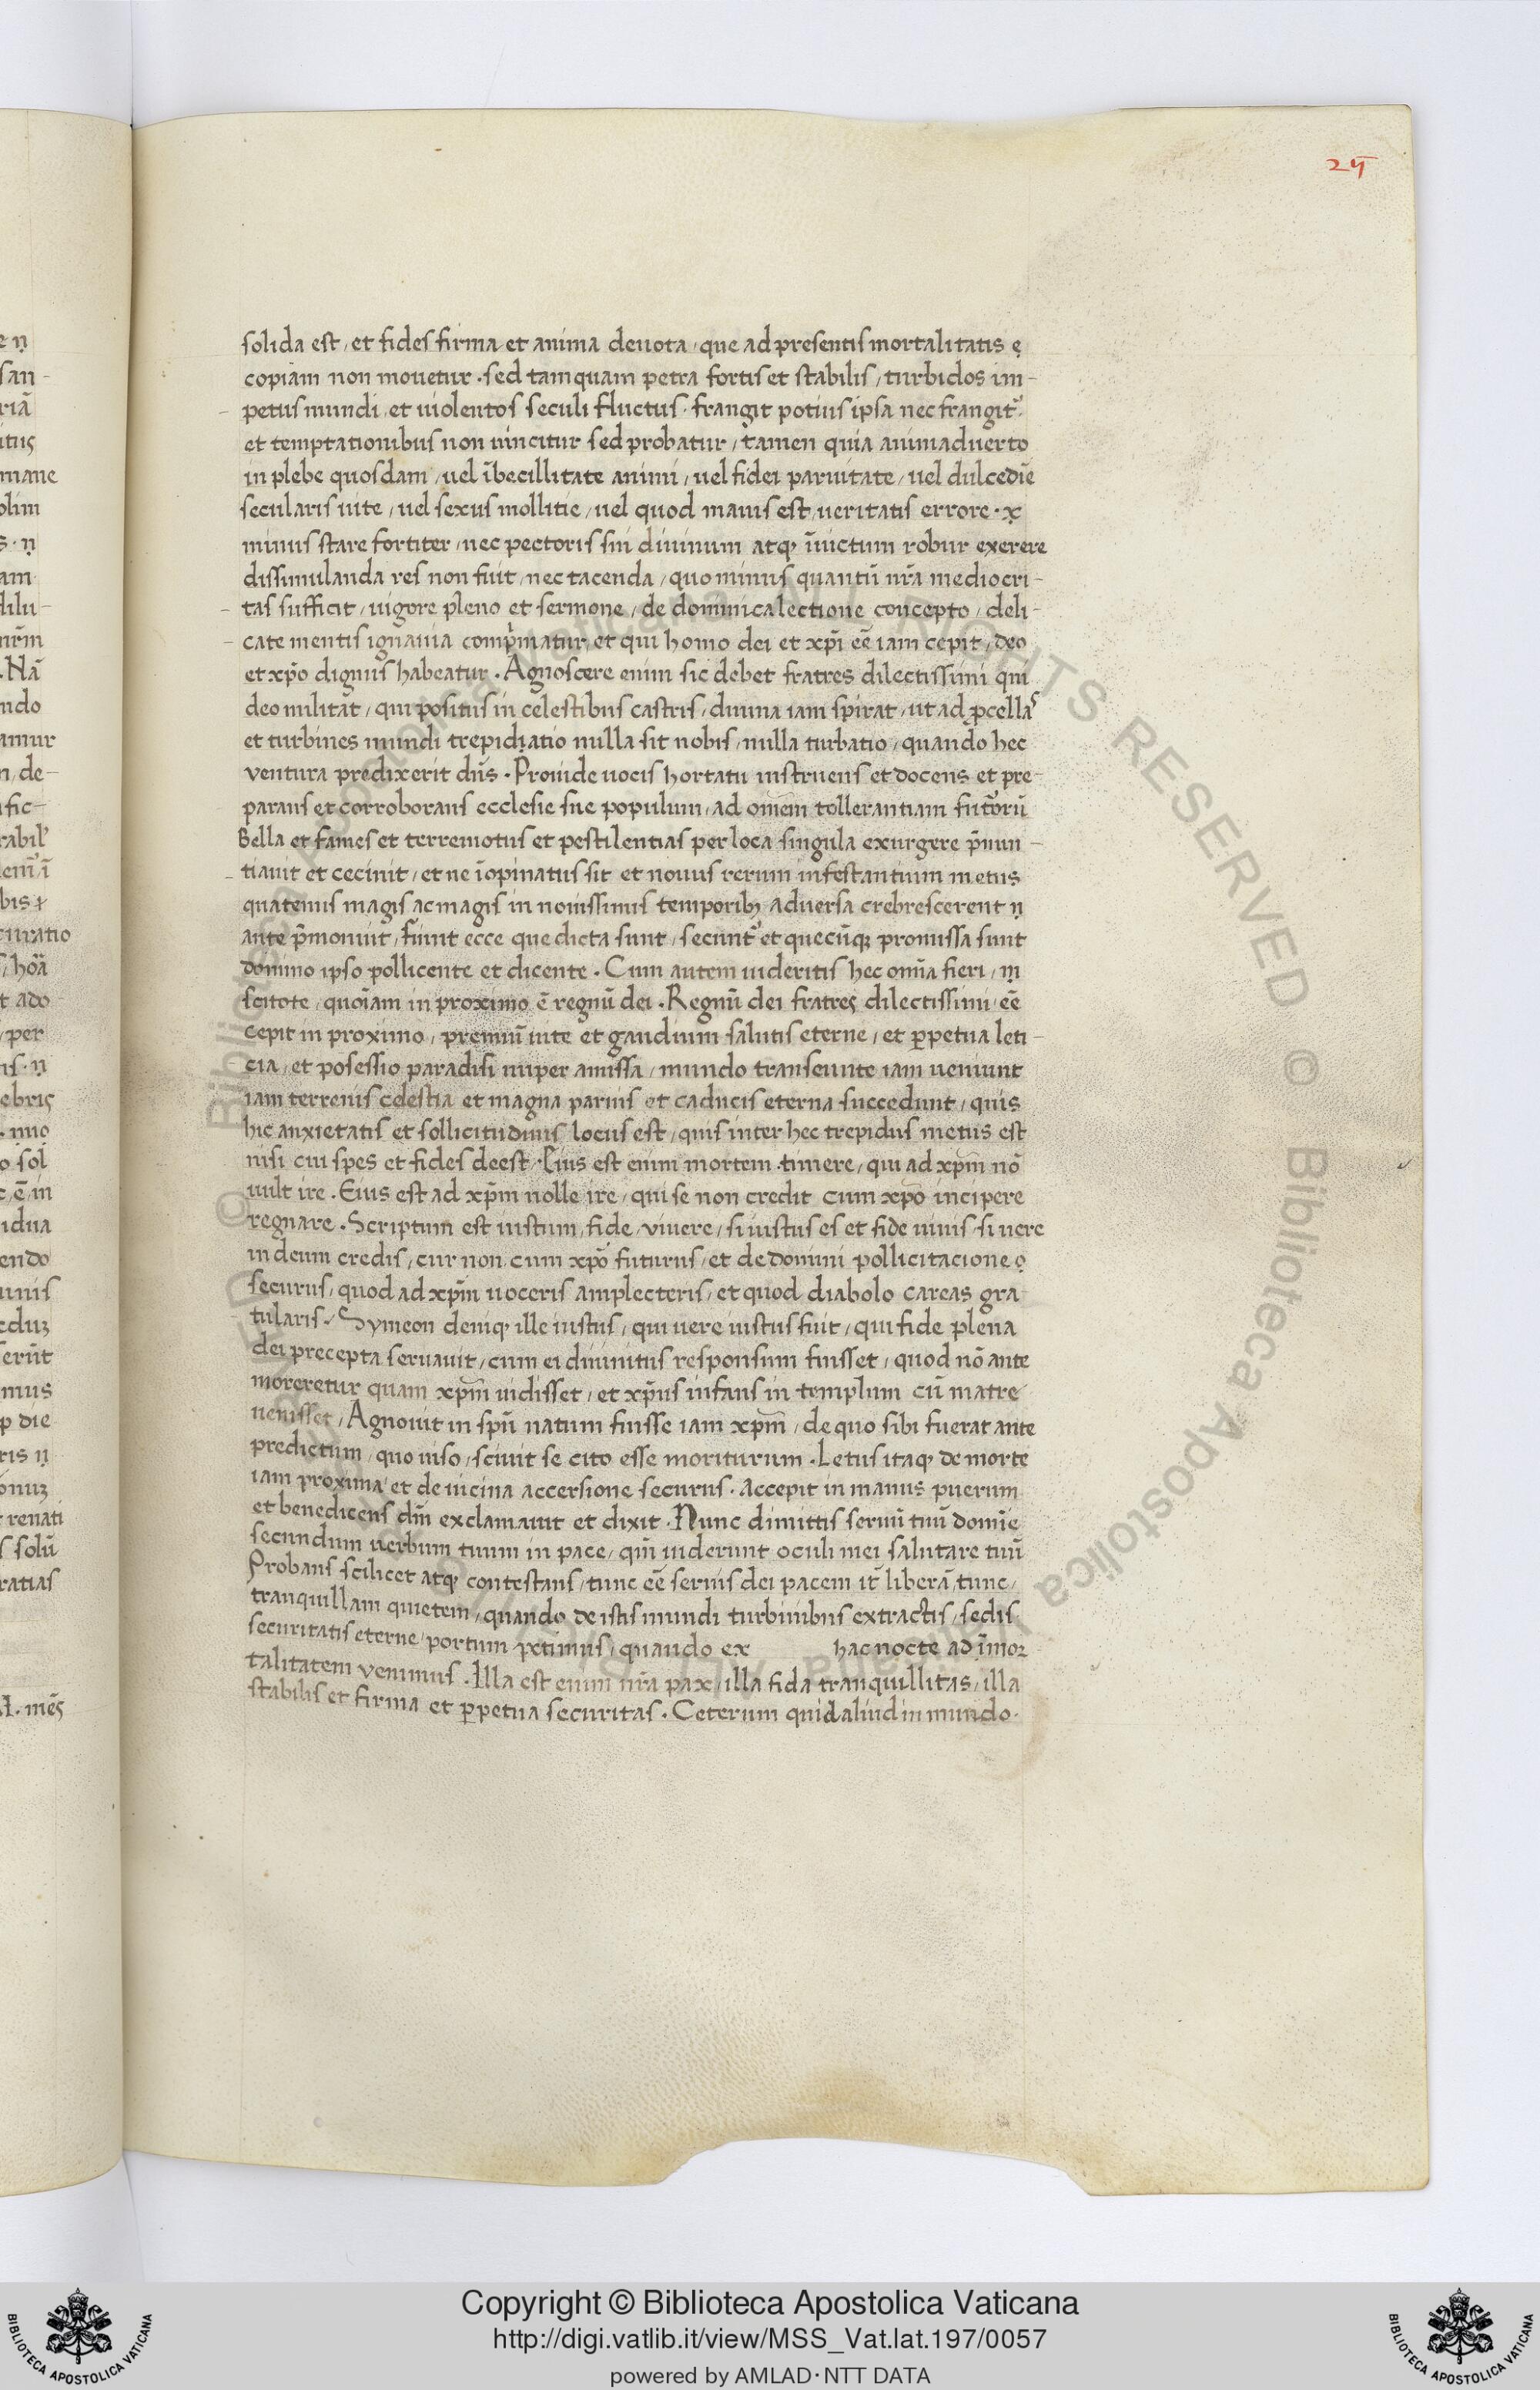 25
solida est, et fides firma et anima deuota, que ad presentis mortalitatis ẹ
copiam non mouetur. sed tamquam petra fortis et stabilis, turbidos im-
petus mundi, et uiolentos seculi fluctus. frangit potius ipsa nec frangit᷑.
et temptationibus non uincitur sed probatur, tamen quia animaduerto
in plebe quosdam, uel ībecillitate animi, uel fidei paruitate, uel dulcedīe
secularis uite, uel sexus mollitie, uel quod maius est, ueritatis errore. x̣
minus stare fortiter, nec pectoris sui diuinum atq, īuictum robur exerere
dissimulanda res non fuit, nec tacenda, quo minus quantū nr̄a mediocri-
tas sufficit, uigore pleno et sermone, de dominica lectione concepto, deli-
cate mentis ignauia comp̄matur, et qui homo dei et xp̄i eē iam cepit, deo
et xp̄o dignus habeatur. Agnoscere enim sic debet fratres dilectissimi qui
deo militat, qui positus in celestibus castris, diuina iam spirat, ut ad ꝓcellas
et turbines mundi trepidạtio nulla sit nobis, nulla turbatio, quando hec
uentura predixerit dn̄s. Prouide uocis hortatu instruens et docens et pre-
parans et corroborans ecclesie sue populum, ad om̄em tollerantiam futurorū
Bella et fames et terremotus et pestilentias per loca singula exurgere p̄nun-
tiauit et cecinit, et ne īopinatus sit et nouus rerum infestantium metus
quatenus magis ac magis in nouissimis temporibꝫ aduersa crebrescerent ṇ
ante p̄monuit, fiunt ecce que dicta sunt, secunt᷑ et quecūqꝫ promissa sunt
domino ipso pollicente et dicente. Cum autem uideritis hec om̄a fieri, ṃ
scitote, quoīam in proximo ē regnū dei. Regnū dei fratres dilectissimi, eē
cepit in proximo, premiū uite et gaudium salutis eterne, et ꝑpetua leti-
cia, et posessio paradisi nuper amissa, mundo transeunte iam ueniunt
iam terrenis celestia et magna paruis et caducis eterna succedunt, quis
hic anxietatis et sollicitudinis locus est, quis inter hec trepidus metus est
nisi cui spes et fides deest. Eius est enim mortem timere, qui ad xp̄m nō
uult ire. Eius est ad xp̄m nolle ire, qui se non credit cum xp̄o incipere
regnare. Scriptum est iustum, fide, viuere, si iustus es et fide uiuis si uere
in deum credis, cur non cum xp̄o futurus, et de domini pollicitacione ọ
securus, quod ad xp̄m uoceris amplecteris, et quod diabolo careas gra
tularis. Symeon deniq, ille iustus, qui uere iustus fuit, qui fide plena
dei precepta seruauit, cum ei diuinitus responsum fuisset, quod nō ante
moreretur quam xp̄m uidisset, et xp̄us infans in templum cū matre
uenisset, Agnouit in sp̄u natum fuisse iam xp̄m, de quo sibi fuerat ante
predictum, quo uiso, sciuit se cito esse moriturum. Letus itaq, de morte
iam proxima et de uicina accersione securus. accepit in manus puerum
et benedicens dn̄m exclamauit et dixit. Nunc dimittis seruū tuū domīe
secundum uerbum tuum in pace, qm̄ uiderunt oculi mei salutare tuū
Probans scilicet atq, contestans, tunc eē seruis dei pacem it̄ liberā, tunc,
tranquillam quietem, quando de istis mundi turbinibus extractis, sedis
securitatis eterne, portum petimus, quando ex hac nocte ad īmor-
talitatem venimus. Illa est enim nr̄a pax, illa fida tranquillitas, illa
stabilis et firma et ꝑpetua securitas. Ceterum quid aliud in mundo.
Copyright © Biblioteca Apostolica Vaticana
http://digi.vatlib.it/view/MSS_Vat.lat.197/0057
powered by AMLAD·NTT DATA